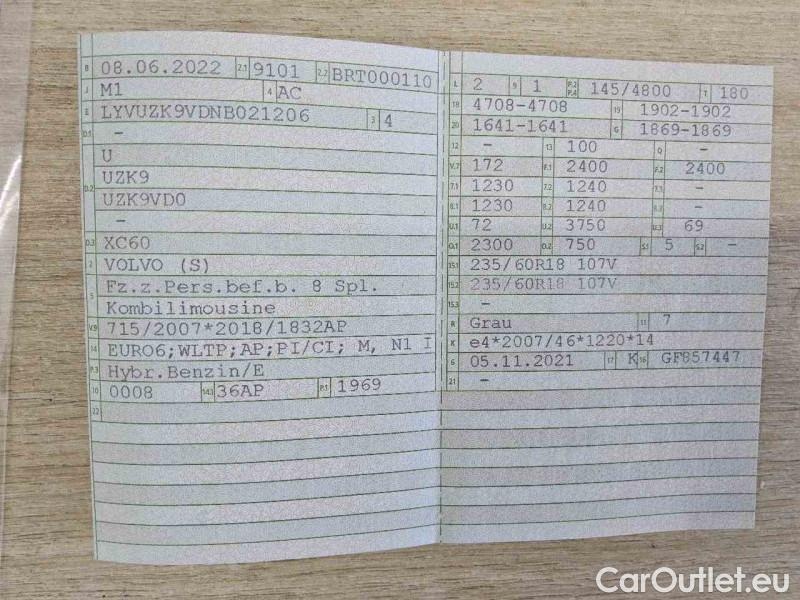 B 08.06.2022 2.1 9101 2.2 BRT000110
J M1 4 AC
E LYVUZK9VDNB021206 3 4
D.1 -
U
UZK9
D.2 UZK9VD0
-
D.3 XC60
2 VOLVO (S)
5 Fz.z.Pers.bef.b. 8 Spl.
Kombilimousine
V.9 715/2007*2018/1832AP
14 EURO6;WLTP;AP;PI/CI; M, N1 I
P.3 Hybr.Benzin/E
10 0008 14.1 36AP P.1 1969
22
L 2 9 1 P.2 P.4 145/4800 T 180
18 4708-4708 19 1902-1902
20 1641-1641 G 1869-1869
12 - 13 100 Q -
V.7 172 F.1 2400 F.2 2400
7.1 1230 7.2 1240 7.3 -
8.1 1230 8.2 1240 8.3 -
U.1 72 U.2 3750 U.3 69
O.1 2300 O.2 750 S.1 5 S.2 -
15.1 235/60R18 107V
15.2 235/60R18 107V
15.3 -
R Grau 11 7
K e4*2007/46*1220*14
6 05.11.2021 17 K 16 GF857447
21 -
CarOutlet.eu